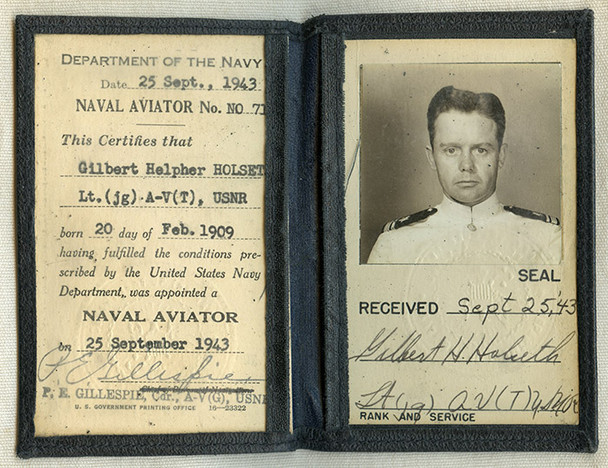 DEPARTMENT OF THE NAVY
Date 25 Sept., 1943
NAVAL AVIATOR No. NO 71
This Certifies that
Gilbert Helpher HOLSET
Lt.(jg) A-V(T), USNR
born 20 day of Feb. 1909
having fulfilled the conditions pre-
scribed by the United States Navy
Department, was appointed a
NAVAL AVIATOR
on 25 September 1943
P. E. Gillespie
P. E. GILLESPIE, Cdr., A-V(G), USNR
U. S. GOVERNMENT PRINTING OFFICE 16—23322
SEAL
RECEIVED Sept 25, 43
Gilbert H. Holseth
Lt (jg) A.V(T) USNR
RANK AND SERVICE